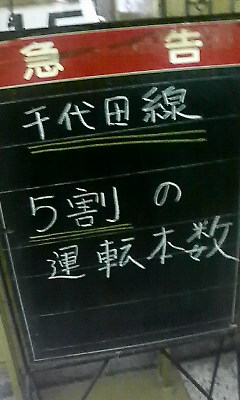 急告
千代田線
5割の
運転本数